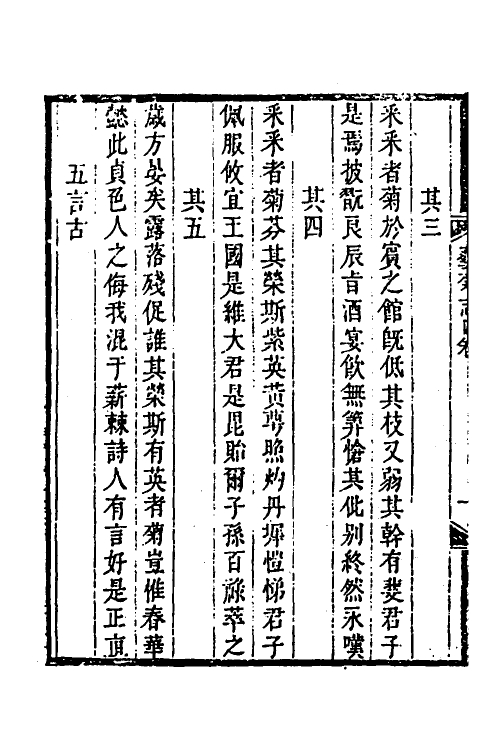 其三
采采者菊於賓之館旣低其枝又弱其幹有斐君子
是焉披翫良辰旨酒宴飮無算愴其仳别終然永嘆
其四
采采者菊芬其榮斯紫英黄萼照灼丹墀愷悌君子
佩服攸宜王國是維大君是毘貽爾子孫百祿萃之
其五
歲方晏矣露落殘促誰其榮斯有英者菊豈惟春華
懿此貞色人之侮我混于薪棘詩人有言好是正直
五言古